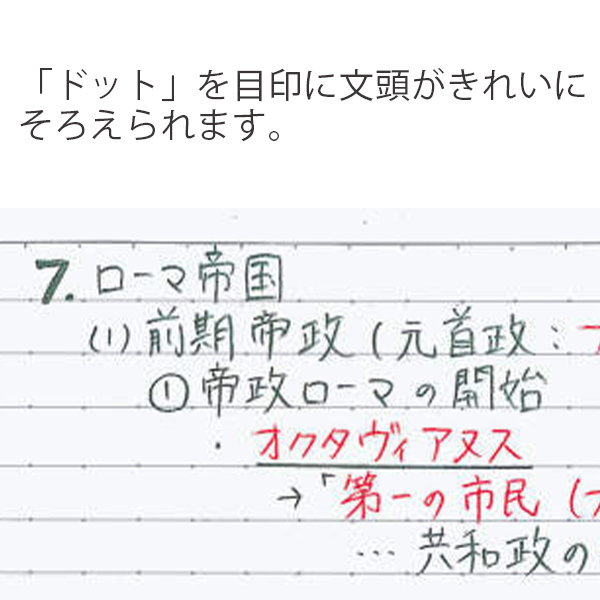 「ドット」を目印に文頭がきれいに
そろえられます。
7. ローマ帝国
(1) 前期帝政 (元首政:
① 帝政ローマの開始
・オクタヴィアヌス
→「第一の市民 (
… 共和政の